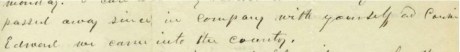 passed away since, in company with yourself and Cousin
Edward we came into the county.